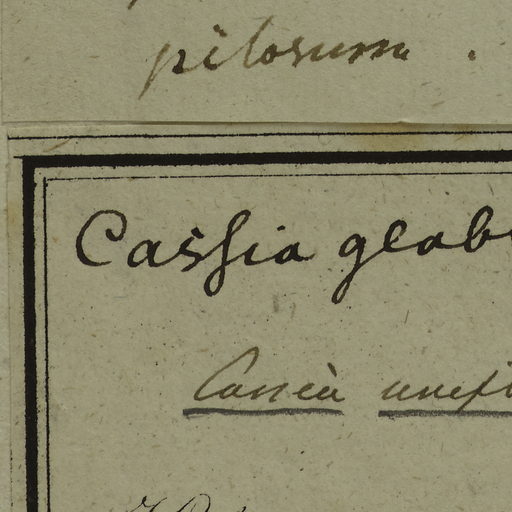 pilosum.
Cassia glab
Cassia